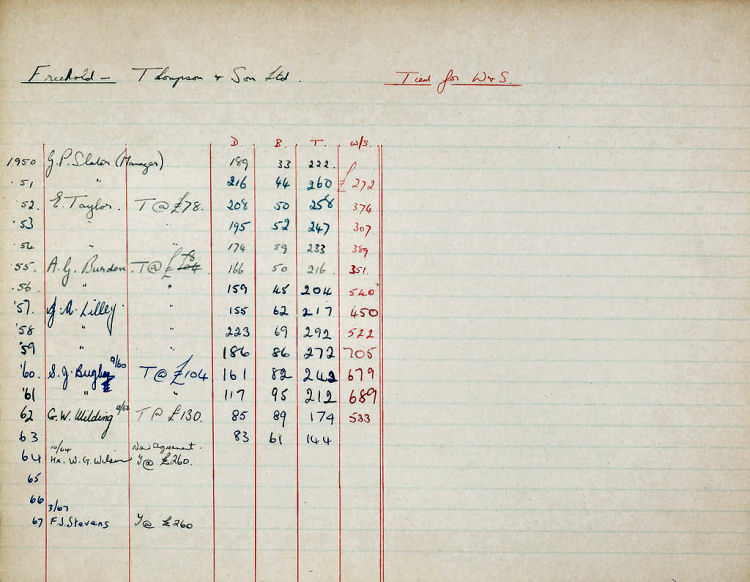 Freehold – Thompson & Son Ltd. Tied for W & S.
D. B. T. W/S.
1950 G.P. Slater (Manager) 189 33 222
.51 " 216 44 260 £272
.52. E. Taylor. T@£78. 208 50 258 374
.53 " " 195 52 247 307.
.54 " " 174 59 233 389
.55. A.G. Burden. T@£ 78 104. 166 50 216 351.
.56. " " 159 45 204 540
'57. J.A. Lilley. " 155 62 217 450
'58 " " 223 69 292 522
'59 " 186 86 272 705
'60. S.J. Bugby 9/60 T@£104 161 82 242 679
'61 " " 117 95 212 689
62 G.W. Wilding 9/62 T@£130. 85 89 174 533
63 83 61 144
10/64 New Agreement.
64 Mr. W.G. Wilson Y@£260.
65
66
3/67
67 F.J. Stevens Y@£260